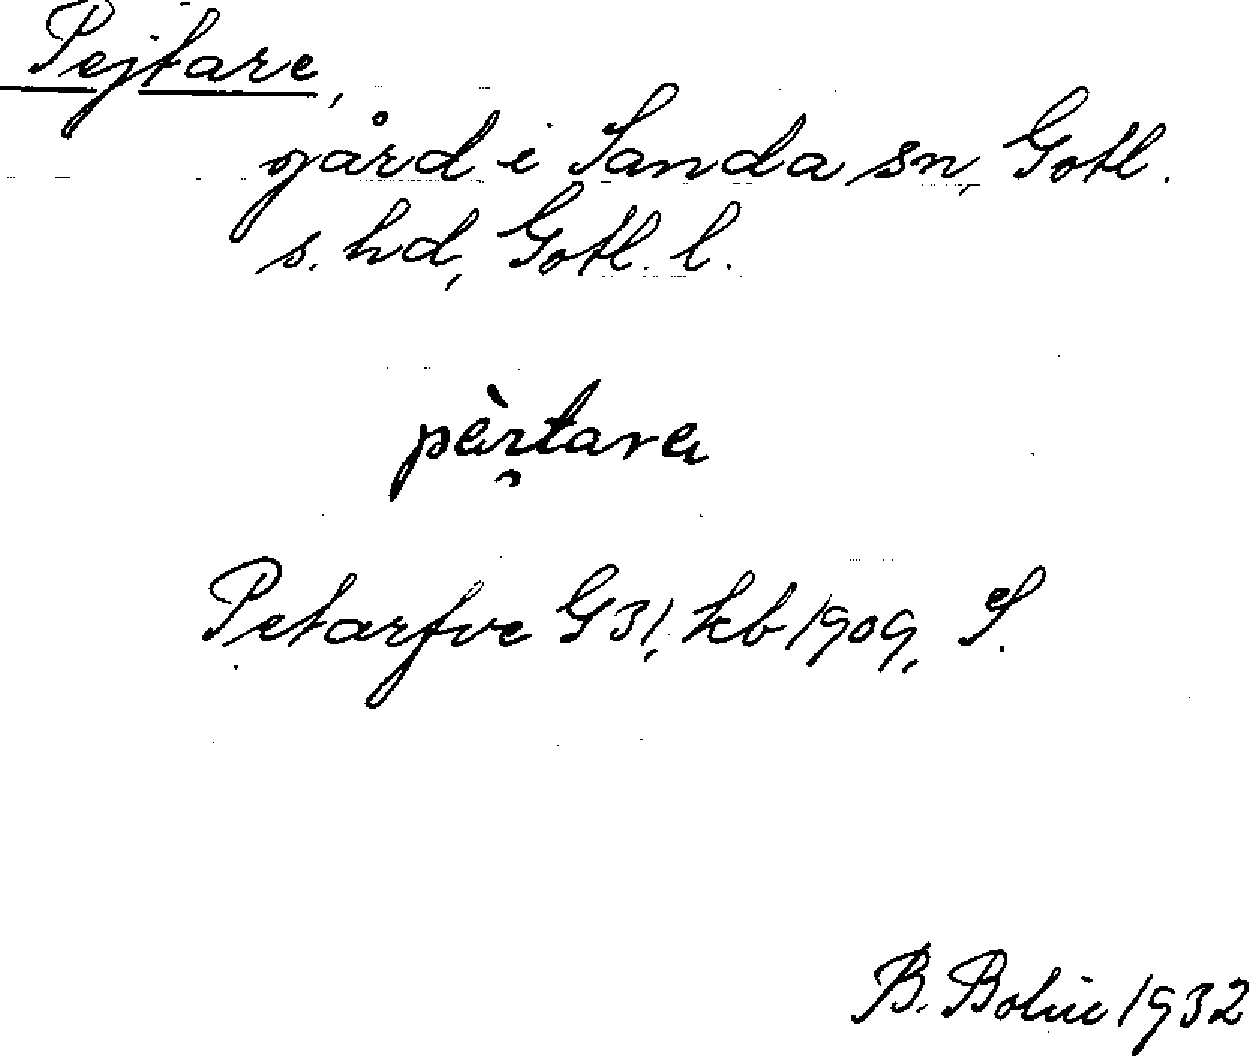 Pejtare,
gård i Sanda sn, Gotl.
s. hd, Gotl. l.
Petarfve G 31, kb 1909, S.
B. Bolin 1932